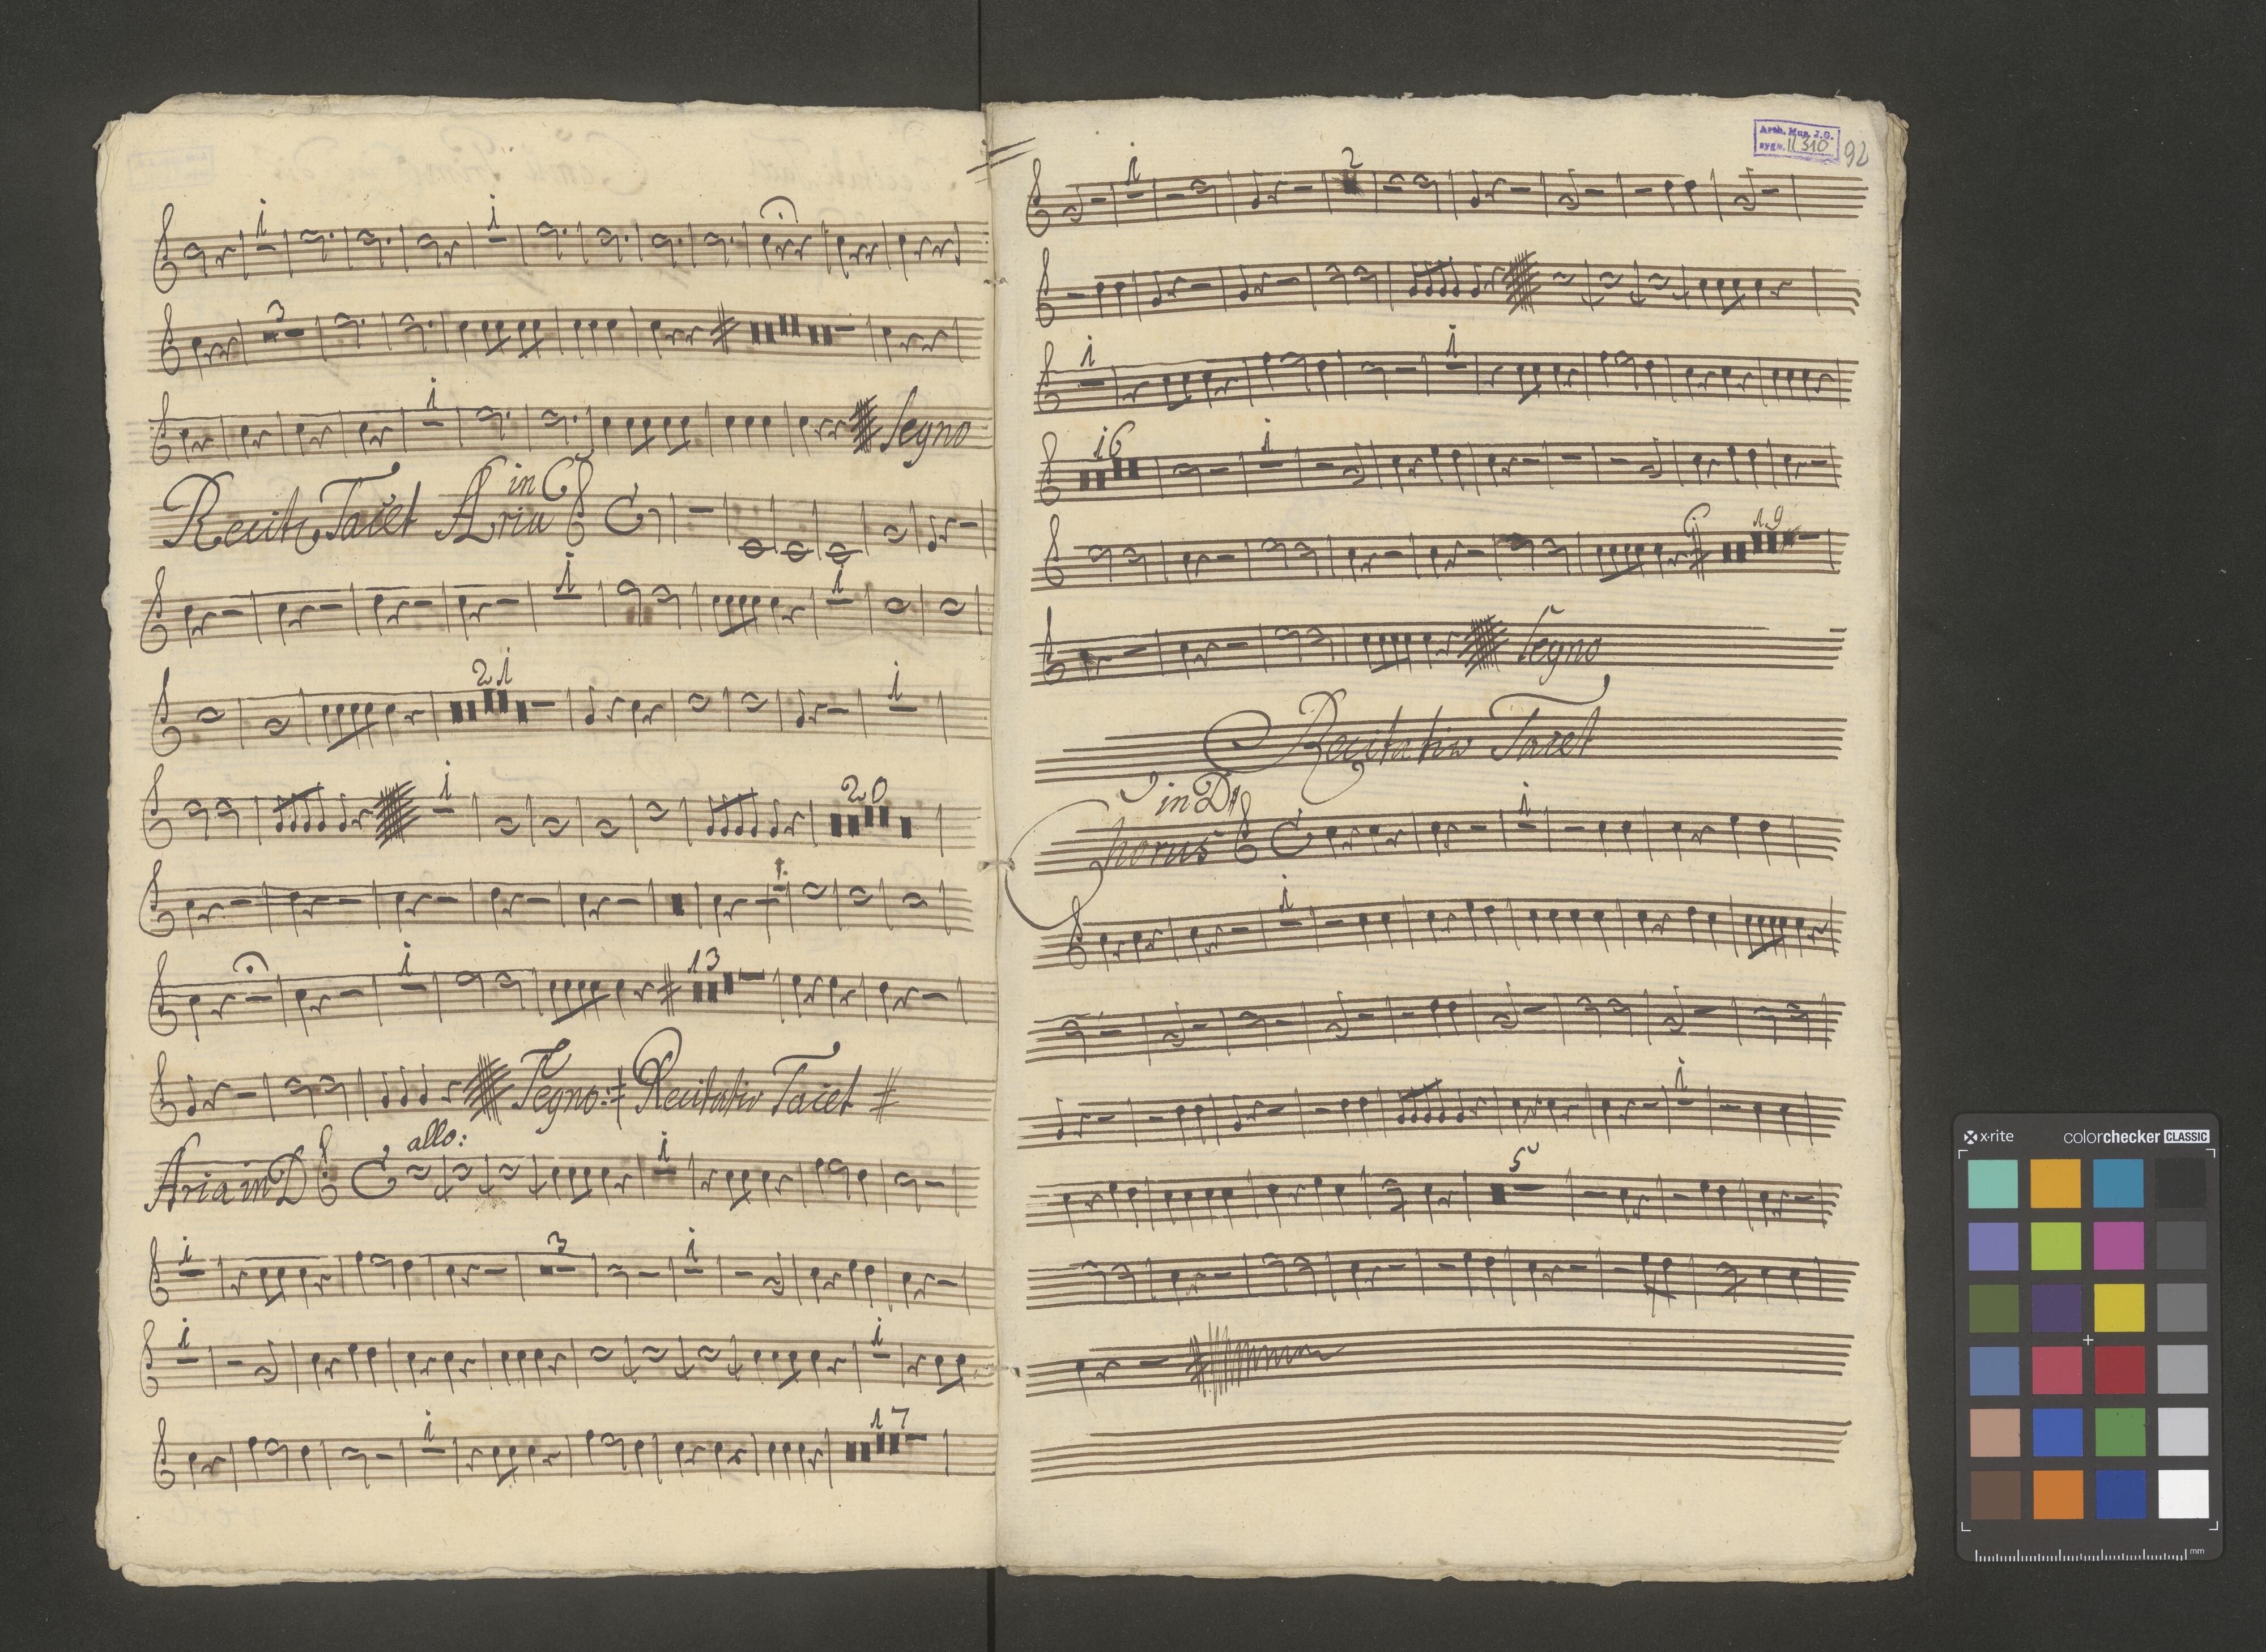 i i
3
i Segno
Recit Tacet Aria in C
i i
21 i
i 20
i 13
Segno: Recitativ Tacet
Aria in D allo: i
i 3 i
i i
i 17
Arch. Muz. J.G.
sygn. II 310
92
i 2
i i
i6 i
19
Segno
Recitativ Tacet
Chorus in D i
i
i
5
x-rite colorchecker CLASSIC
mm